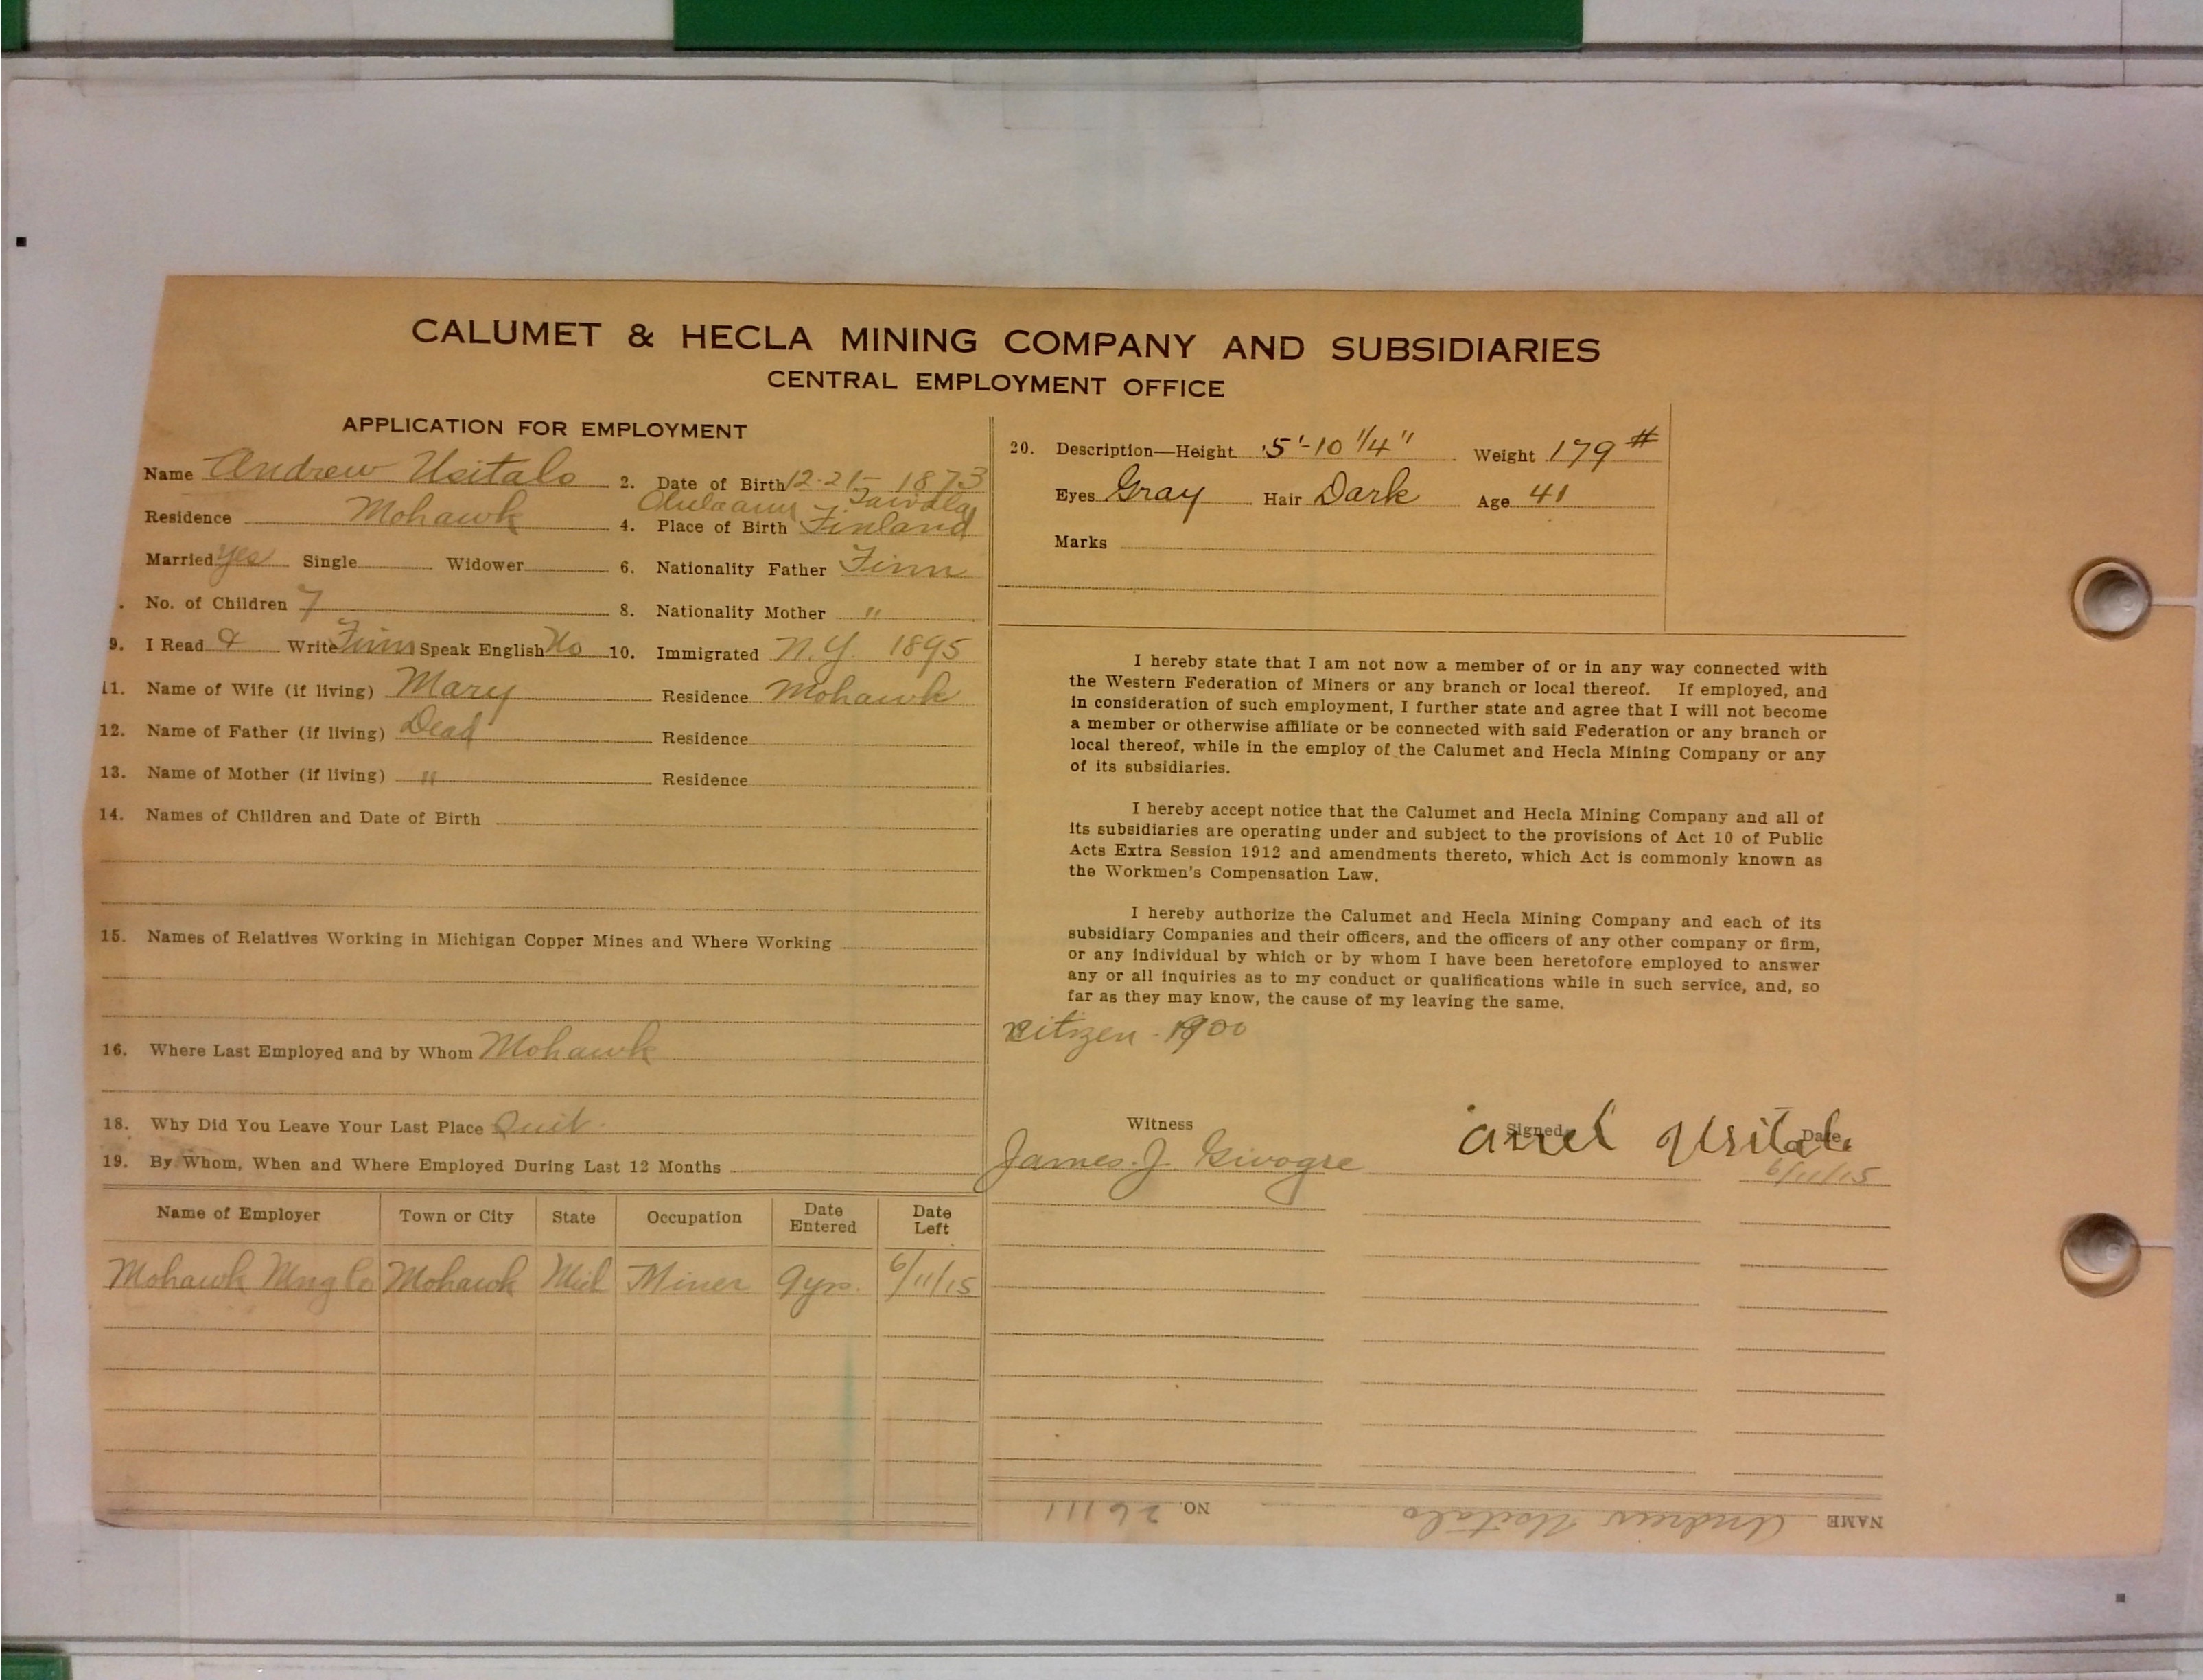 CALUMET & HECLA MINING COMPANY AND SUBSIDIARIES
CENTRAL EMPLOYMENT OFFICE
APPLICATION FOR EMPLOYMENT
Name Andrew Usitalo 2. Date of Birth 12-21-1873
Residence Mohawk 4. Place of Birth Finland
Married yes Single Widower 6. Nationality Father Finn
No. of Children 7 8. Nationality Mother "
9. I Read & Write Finn Speak English No 10. Immigrated N.Y. 1895
11. Name of Wife (if living) Mary Residence Mohawk
12. Name of Father (if living) Dead Residence
13. Name of Mother (if living) " Residence
14. Names of Children and Date of Birth
15. Names of Relatives Working in Michigan Copper Mines and Where Working
16. Where Last Employed and by Whom Mohawk
18. Why Did You Leave Your Last Place Quit.
19. By Whom, When and Where Employed During Last 12 Months
Name of Employer Town or City State Occupation Date Entered Date Left
Mohawk Mng Co Mohawk Mich Miner 9 yrs. 6/11/15
20. Description—Height 5'-10 1/4" Weight 179 #
Eyes Gray Hair Dark Age 41
Marks
I hereby state that I am not now a member of or in any way connected with
the Western Federation of Miners or any branch or local thereof. If employed, and
in consideration of such employment, I further state and agree that I will not become
a member or otherwise affiliate or be connected with said Federation or any branch or
local thereof, while in the employ of the Calumet and Hecla Mining Company or any
of its subsidiaries.
I hereby accept notice that the Calumet and Hecla Mining Company and all of
its subsidiaries are operating under and subject to the provisions of Act 10 of Public
Acts Extra Session 1912 and amendments thereto, which Act is commonly known as
the Workmen's Compensation Law.
I hereby authorize the Calumet and Hecla Mining Company and each of its
subsidiary Companies and their officers, and the officers of any other company or firm,
or any individual by which or by whom I have been heretofore employed to answer
any or all inquiries as to my conduct or qualifications while in such service, and, so
far as they may know, the cause of my leaving the same.
citizen - 1900
Witness Signed Date
James J. Usitalo 6/11/15
NAME Andrew Usitalo NO. 26111